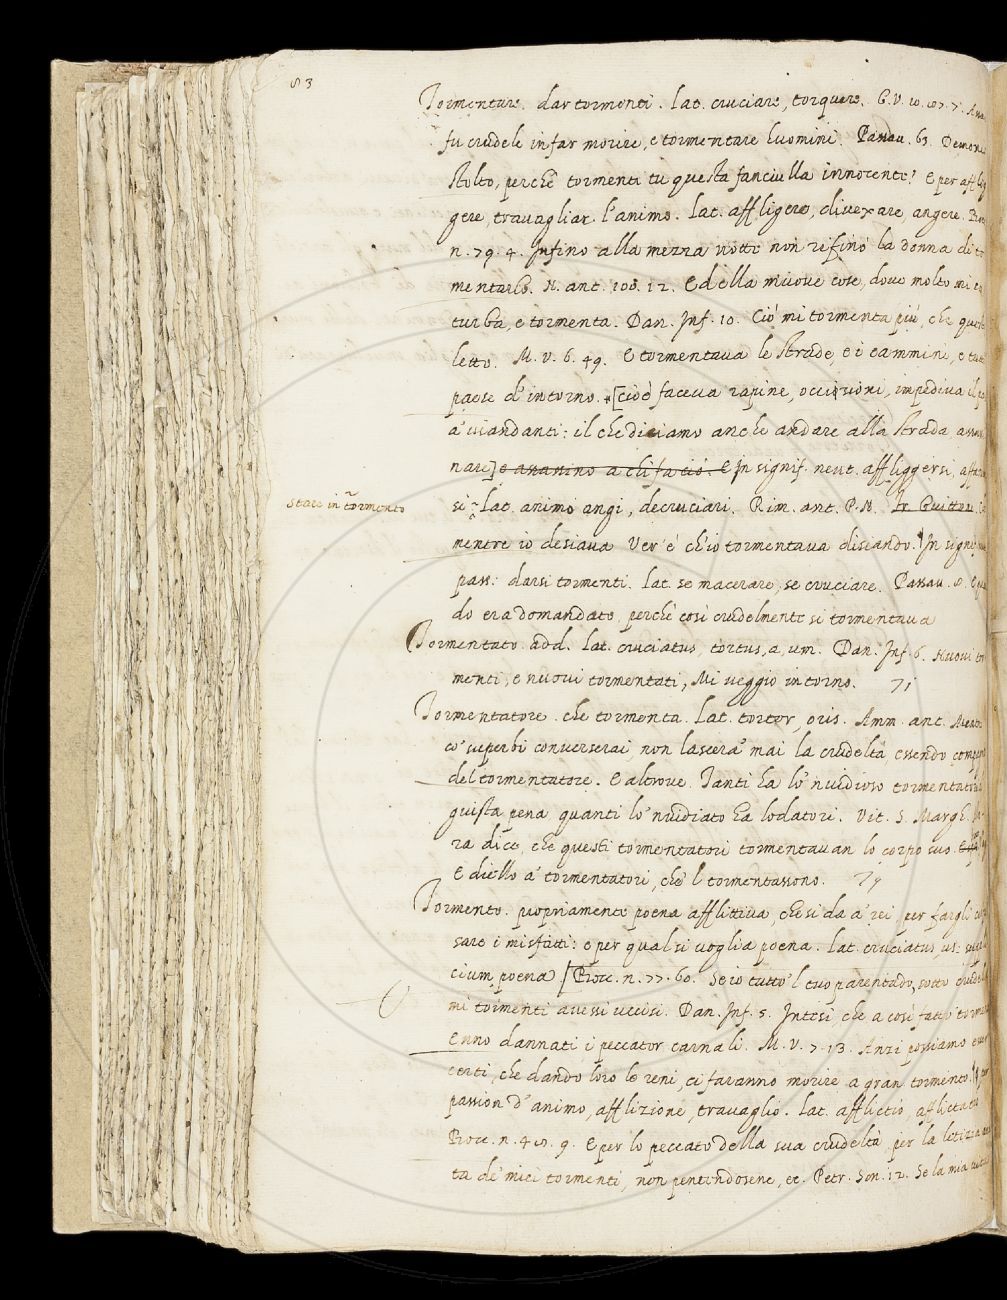 83
Tormentare. dar tormenti. Lat. cruciare, torquere. G. V. 10.
fu crudele in far morire, e tormentare huomini. Passau. 63. Demonio
stolto, perchè tormenti tu questa fanciulla innocente? E per afflig
gere, travagliar. l'animo. Lat. affligere, divexare, angere. Bocc.
n. 79. 4. Infino alla mezza notte non rifinò la donna di tor
mentarlo. N. ant. 100. 12. E della nuove cose, dove molto mi
turba, e tormenta. Dan. Inf. 10. Ciò mi tormenta più, che questo
letto. M. V. 6. 49. E tormentava le strade, e i cammini, e tutto
paese d'intorno. [cioè faceva rapine, occisioni, impediva il
a' viandanti: il che diciamo anche andare alla strada
nare] e assassino a chi fa ciò. E In signif. neut. affliggersi,
stare in tormento
si Lat. animo angi, decruciari. Rim. ant. P. N. Fr. Guitton.
mentre io desiava Ver'è ch'io tormentava disiando. In signif.
pass. darsi tormenti. Lat. se macerare, se cruciare. Passau. 8.
do era domandato, perchè così crudelmente si tormentava
Tormentato. add. Lat. cruciatus, tortus, a, um. Dan. Inf. 6. Nuovi tor
menti, e nuovi tormentati, Mi veggio intorno. 71
Tormentatore. che tormenta. Lat. tortor, oris. Amm. ant.
co' superbi converserai, non lascerà mai la crudeltà, essendo
del tormentatore. E altrove. Tanti ha lo 'nvidioso tormentatori
giusta pena quanti lo 'nvidiato ha lodatori. Vit. S. Margh.
ra dice, che questi tormentatori tormentavan lo corpo suo.
E diello a' tormentatori, che 'l tormentassono.
Tormento. propriamente poena afflittiva, che si da a' rei per fargli
sare i misfatti: e per qual si voglia poena. Lat. cruciatus, us:
cium, poena [Bocc. n. 77. 60. Se io tutto 'l tuo parentado, sotto crude
mi tormenti avessi uccisi. Dan. Inf. 5. Intesi, che a così fatto
Enno dannati i peccator carnali. M. V. 7. 13. Anzi possiamo
certi, che dando loro le reni, ci faranno morire a gran tormento.
passion d'animo, afflizione, travaglio. Lat. afflictio,
Bocc. n. 48. 9. E per lo peccato della sua crudeltà, per la letizia
ta de' miei tormenti, non pentendosene, ec. Petr. Son. 12. Se la mia vita